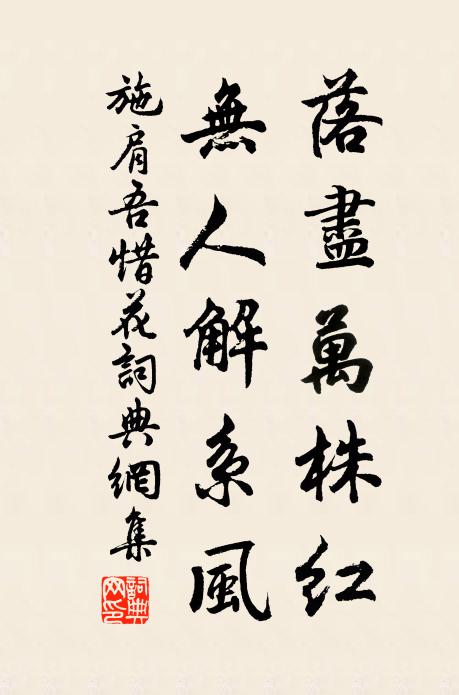 落盡萬株紅
無人解系風
施肩吾惜花詞典網集
詞典網印